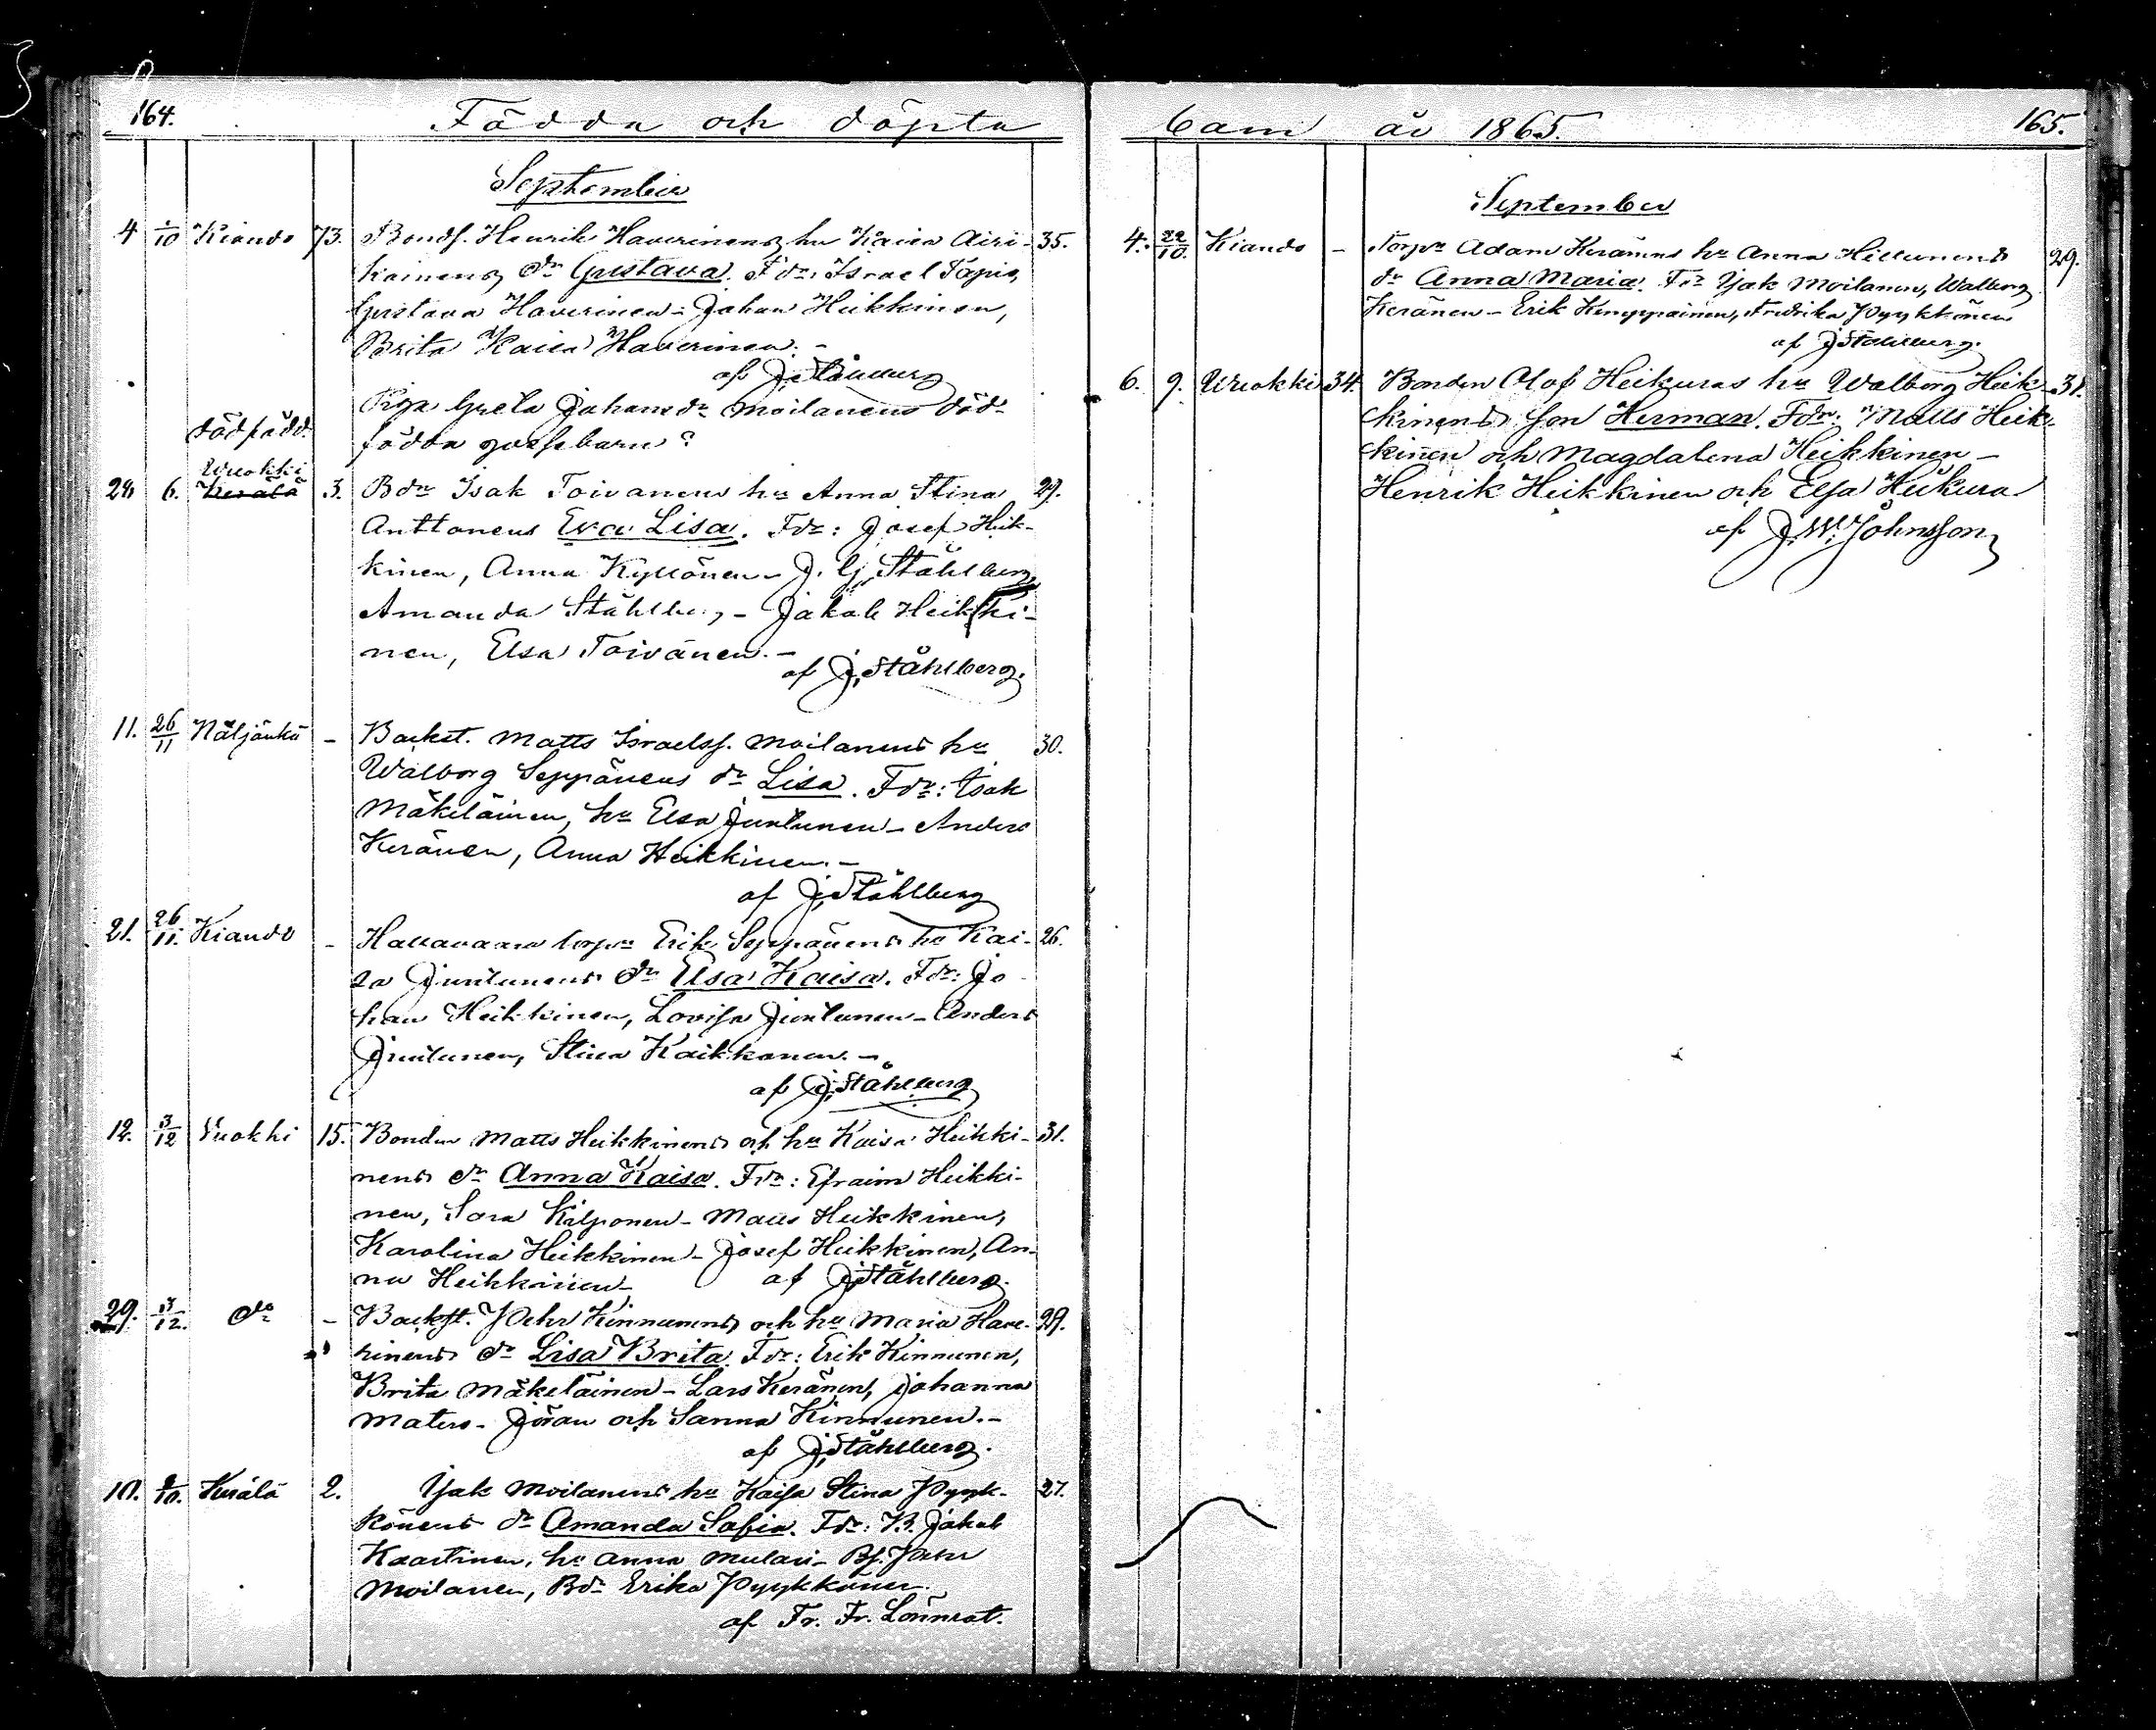 164.
Födda och döpta
September
4 1/10 Kiando 73. Bonds. Henrik Haverinens hu Kaisa Airi- 35.
kainens dr Gustava. Fdr: Israel Tapio,
Gustava Haverinen - Johan Heikkinen,
Brita Kaisa Haverinen. -
af J. Ståhlberg
Piga Greta Johansdr Moilanens död-
dödfödd. födda gossebarn?
Wuokki
24 6. Kerälä 3. Bdn Isak Toivanens hu Anna Stina 29.
Anttonens Eva Lisa. Fdr: Josef Heik-
kinen, Anna Kyllönen - J. G. Ståhlberg,
Amanda Ståhlberg - Jakob Heikki-
nen, Elsa Toivanen. -
af J. Ståhlberg.
11. 26/11 Näljänkä - Backst. Matts Israelss. Moilanens hu 30.
Walborg Seppänens dr Lisa. Fdr: Isak
Mäkeläinen, hu Elsa Juntunen - Anders
Keränen, Anna Heikkinen. -
af J. Ståhlberg
21. 26/11. Kiando - torpn Erik Seppänens hu Kai- 26.
sa Juntunens dr Elsa Kaisa. Fdr: Jo-
han Heikkinen, Lovisa Juntunen - Anders
Juntunen, Stina Kaikkonen. -
af J. Ståhlberg
12. 3/12 Vuokki 15. Bonden Matts Heikkinens och hu Kaisa Heikki- 31.
nens dr Anna Kaisa. Fdr: Efraim Heikki-
nen, Sara Kilponen - Matts Heikkinen,
Karolina Heikkinen - Josef Heikkinen, An-
na Heikkinen - af J. Ståhlberg.
29. 3/12. do - Backst. Pehr Kinnunens och hu Maria Have- 29.
rinens dr Lisa Brita. Fdr: Erik Kinnunen,
Brita Mäkeläinen - Lars Keränen, Johanna
Matero - Jöran och Sanna Kinnunen. -
af J. Ståhlberg.
10. /10. Kerälä 2. Isak Moilanens hu Kaisa Stina Pyyk- 27.
könens dr Amanda Sofia. Fdr: B. Jakob
Kaartinen, hu Anna Mulari - Bs. Pehr
Moilanen, Bdr Erika Pyykkönen.
af Fr. Fr. Lönnrot.
165.
barn år 1865.
September
4. 22/10. Kiando - Torpn Adam Keränens hu Anna Hiltunens 29.
dr Anna Maria. Fdr Isak Moilanen, Walborg
Keränen - Erik Kemppainen, Fredrika Pyykkönen
af J. Ståhlberg.
6. 9. Wuokki 34. Bonden Olof Heikuras hu Walborg Heik- 31.
kinens son Herman. Fdr: Matts Heik-
kinen och Magdalena Heikkinen -
Henrik Heikkinen och Elsa Heikura
af J. W. Johnsson